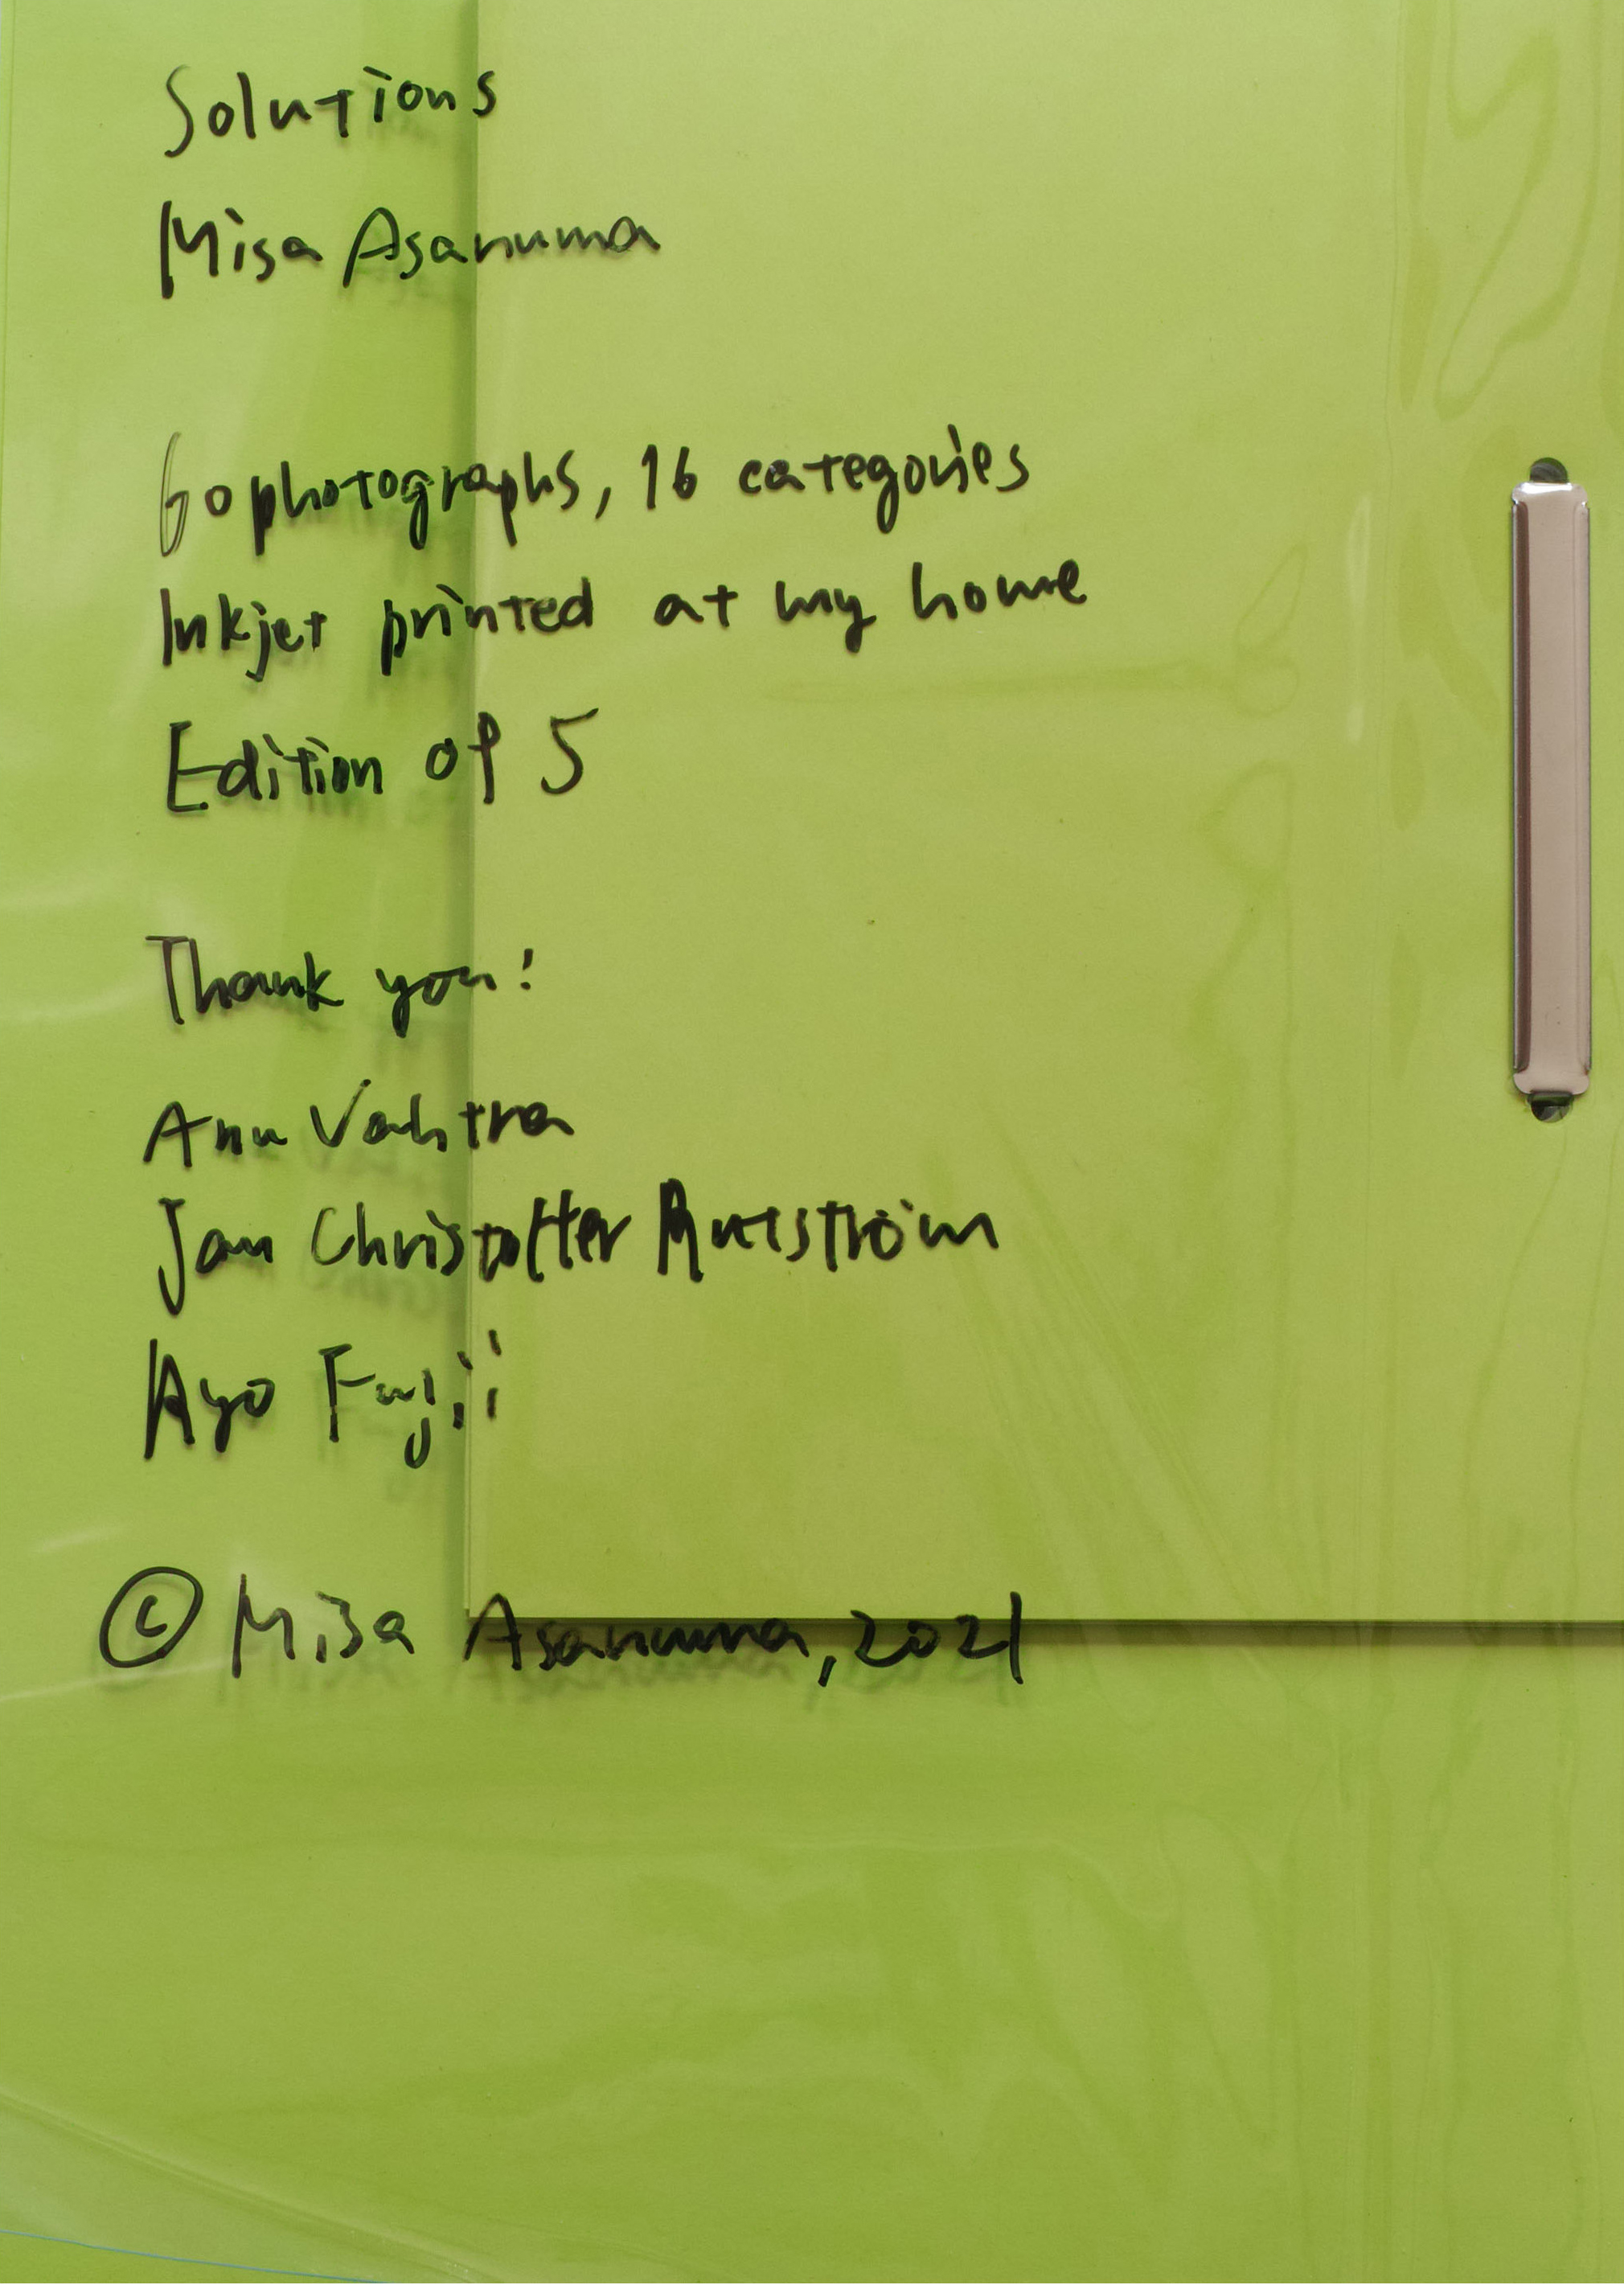 Solutions
Misa Asanuma
60 photographs, 16 categories
Inkjet printed at my home
Edition of 5
Thank you!
Anu Vahtra
Jan Christoffer Rutström
Ayo Fujii
© Misa Asanuma, 2021